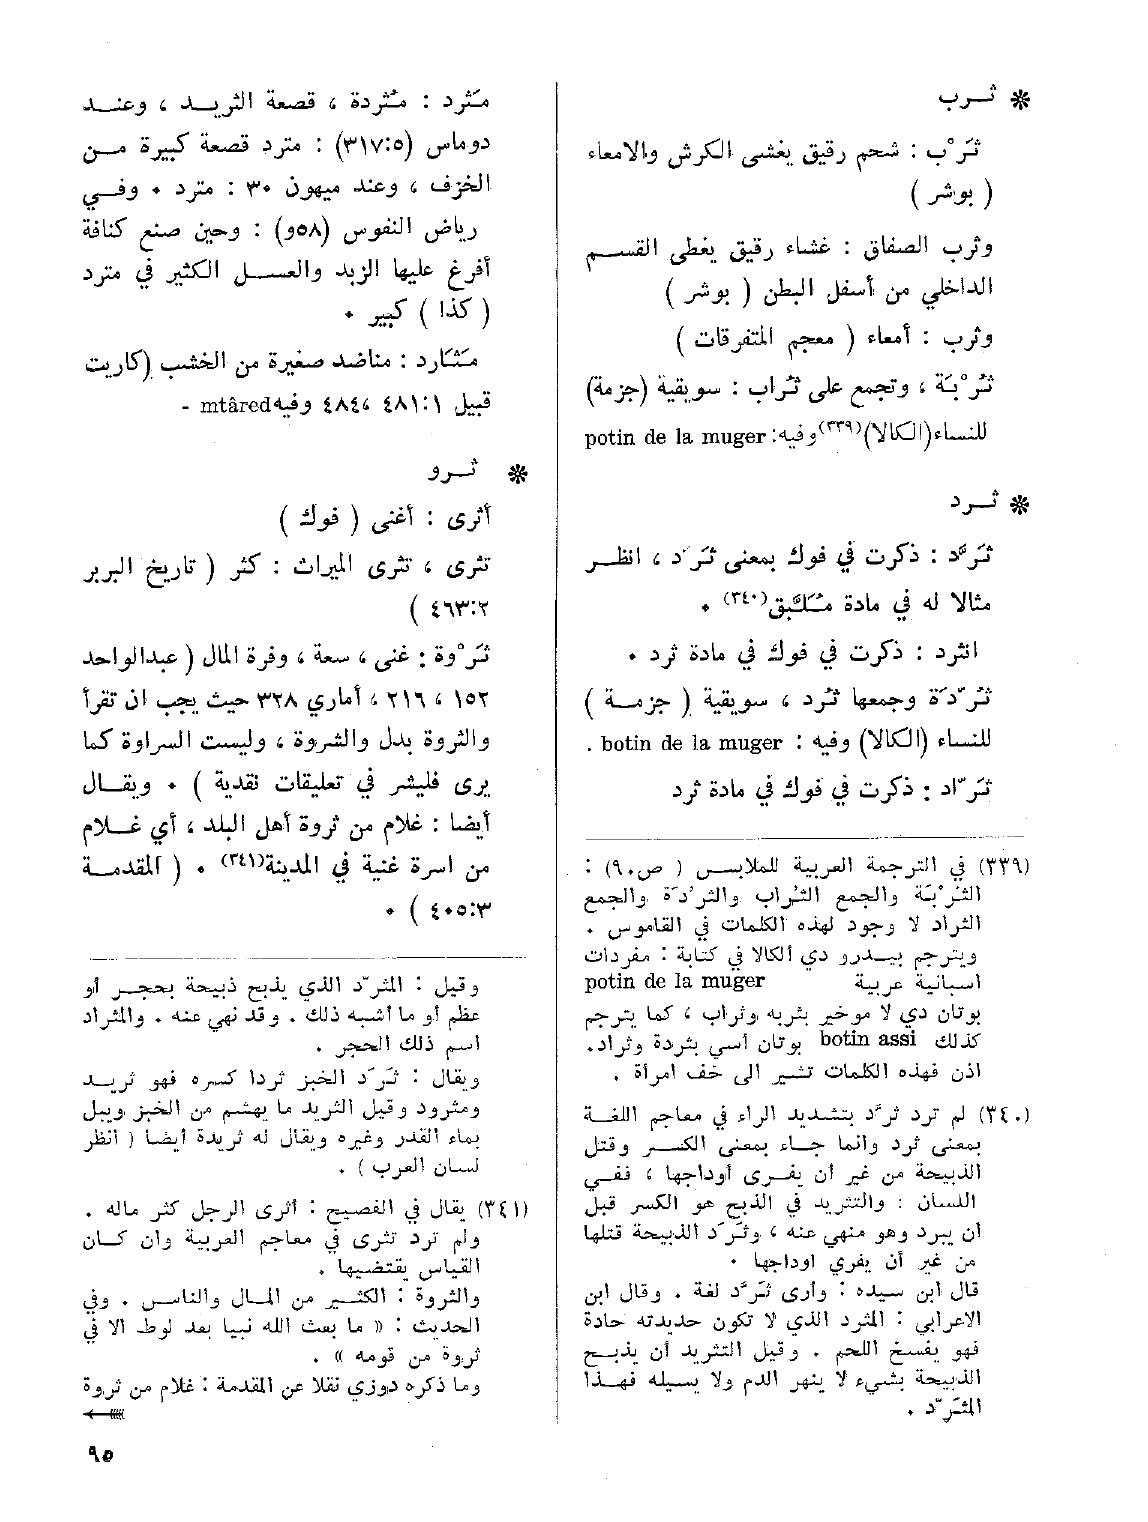 ❋ ثرب
ثَرْب : شحم رقيق يغشى الكرش والامعاء
( بوشر )
وثرب الصفاق : غشاء رقيق يغطى القسم
الداخلي من أسفل البطن ( بوشر )
وثرب : أمعاء ( معجم المتفرقات )
ثُرْبَة ، وتجمع على ثراب : سويقية (جزمة)
للنساء(الكالا)(٣٣٩)وفيه: potin de la muger
❋ ثرد
ثَرَّد : ذكرت في فوك بمعنى ثَرَد ، انظر
مثالا له في مادة مُلَبَّق(٣٤٠) .
انثرد : ذكرت في فوك في مادة ثرد .
ثُرْدَة وجمعها ثُرد ، سويقية ( جزمة )
للنساء (الكالا) وفيه : botin de la muger .
ثَرّاد : ذكرت في فوك في مادة ثرد
(٣٣٩) في الترجمة العربية للملابس ( ص٩٠) :
الثُرْبَة والجمع الثُراب والثُرْدَة والجمع
الثراد لا وجود لهذه الكلمات في القاموس .
ويترجم بيدرو دي ألكالا في كتابة : مفردات
اسبانية عربية potin de la muger
بوتان دي لا موخير بثربه وثراب ، كما يترجم
كذلك botin assi بوتان أسي بثردة وثراد.
اذن فهذه الكلمات تشير الى خف امرأة .
(٣٤٠) لم ترد ثرَّد بتشديد الراء في معاجم اللغة
بمعنى ثرد وانما جاء بمعنى الكسر وقتل
الذبيحة من غير أن يفرى أوداجها ، ففي
اللسان : والتثريد في الذبح هو الكسر قبل
ان يبرد وهو منهي عنه ، وثَرَد الذبيحة قتلها
من غير أن يفري اوداجها .
قال ابن سيده : وأرى ثَرَّد لغة . وقال ابن
الاعرابي : المثرد الذي لا تكون حديدته حادة
فهو يفسخ اللحم . وقيل التثريد أن يذبح
الذبيحة بشيء لا ينهر الدم ولا يسيله فهذا
المُثَرِّد .
مَثرد : مثردة ، قصعة الثريد ، وعند
دوماس (٣١٧:٥) : مترد قصعة كبيرة من
الخزف ، وعند ميهون ٣٠ : مترد . وفي
رياض النفوس (٥٨و) : وحين صنع كنافة
أفرغ عليها الزبد والعسل الكثير في مترد
( كذا ) كبير .
مَثَارد : مناضد صغيرة من الخشب (كاريت
قبيل ٤٨١:١ ،٤٨٤ وفيهmtâred -
❋ ثرو
أثرى : أغنى ( فوك )
تثرى ، تثرى الميراث : كثر ( تاريخ البربر
٤٦٣:٢ )
ثَرْوة : غنى ، سعة ، وفرة المال ( عبدالواحد
١٥٢ ، ٢١٦ ، أماري ٣٢٨ حيث يجب ان تقرأ
والثروة بدل والشروة ، وليست السراوة كما
يرى فليشر في تعليقات نقدية ) . ويقال
أيضا : غلام من ثروة أهل البلد ، أي غلام
من اسرة غنية في المدينة(٣٤١) . ( المقدمة
٤٠٥:٣ ) .
وقيل : المثرّد الذي يذبح ذبيحة بحجر أو
عظم أو ما أشبه ذلك . وقد نهي عنه . والمثراد
اسم ذلك الحجر .
ويقال : ثَرَد الخبز ثردا كسره فهو ثريد
ومثرود وقيل الثريد ما يهشم من الخبز ويبل
بماء القدر وغيره ويقال له ثريدة أيضا ( انظر
لسان العرب ) .
(٣٤١) يقال في الفصيح : أثرى الرجل كثر ماله .
ولم ترد تثرى في معاجم العربية وان كان
القياس يقتضيها .
والثروة : الكثير من المال والناس . وفي
الحديث : « ما بعث الله نبيا بعد لوط الا في
ثروة من قومه » .
وما ذكره دوزي نقلا عن المقدمة : غلام من ثروة
٩٥